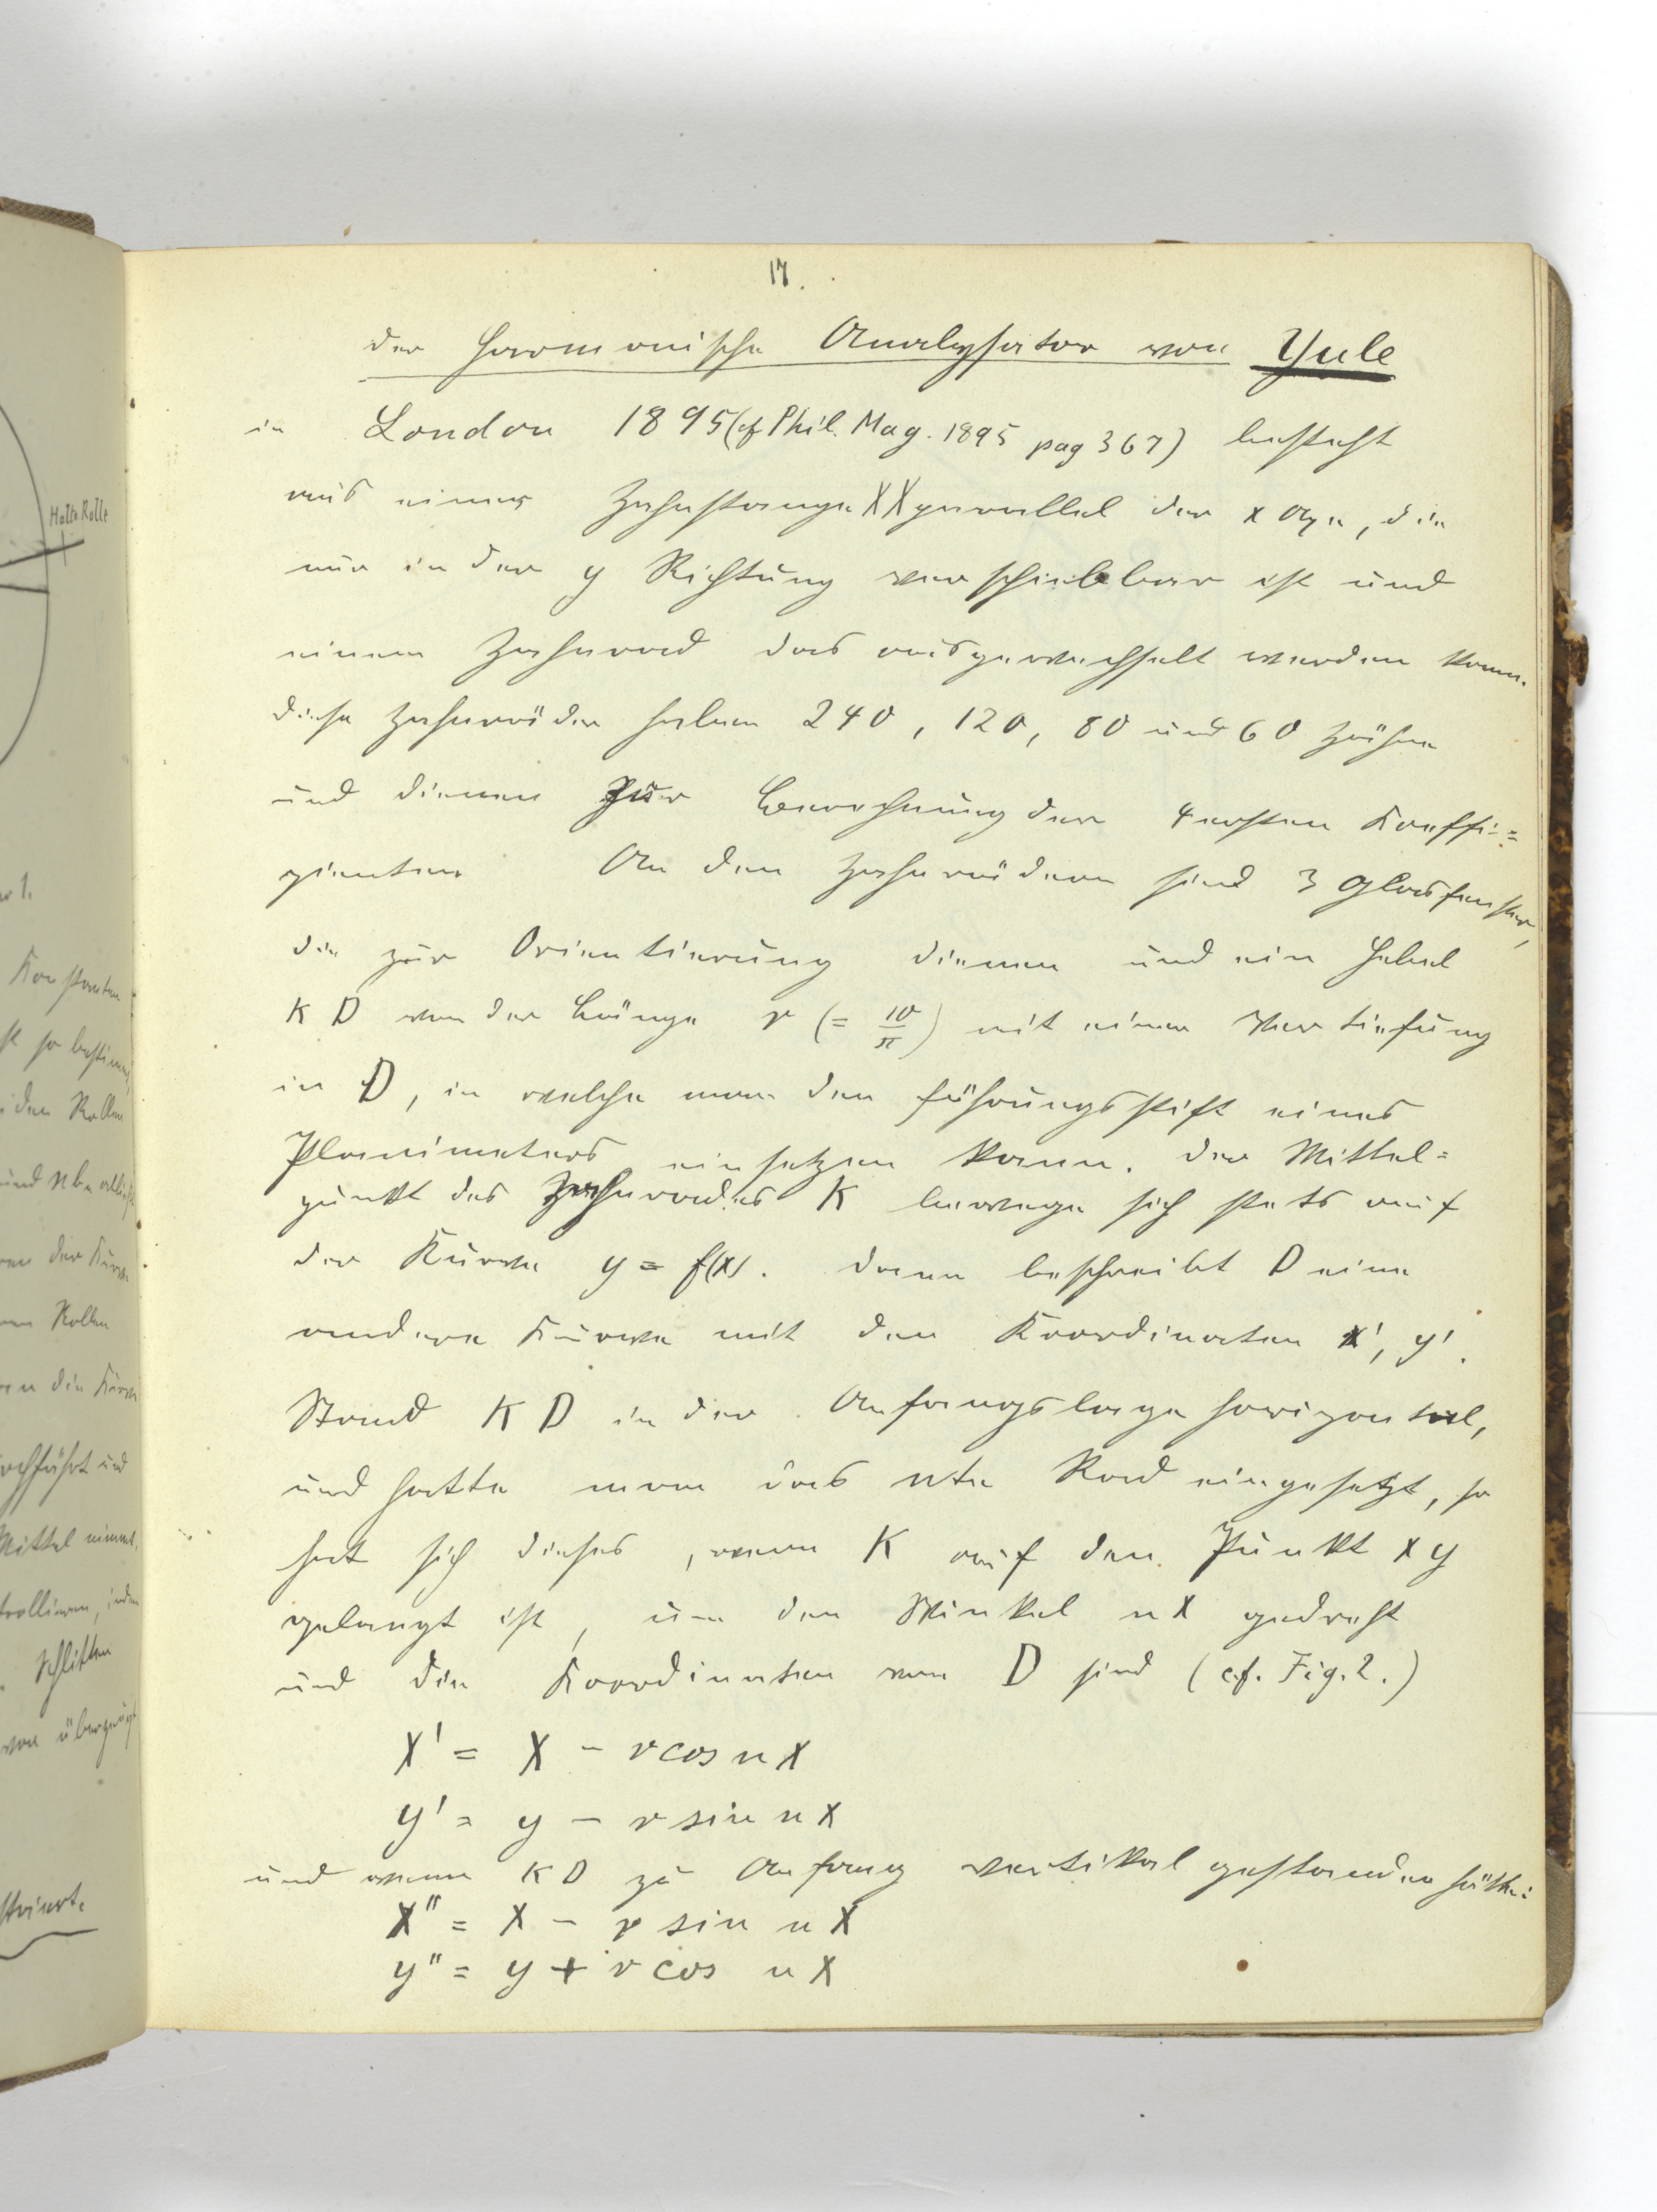 17.
Der harmonische Analysator von Yule
in London 1895 (cf Phil. Mag. 1895 pag 367) besteht
aus einer Zahnstange XX parallel der x Axe, die
nur in der y Richtung verschiebbar ist und
einem Zahnrad das ausgewechselt werden kann.
Diese Zahnräder haben 240, 120, 80 und 60 Zähne
und dienen zur Berechnung der 4 ersten Koeffi=
zienten. An den Zahnrädern sind 3 Glasfenster,
die zur Orientierung dienen und ein Hebel
K D von der Länge r (= 10/π) mit einer Vertiefung
in D, in welche man den Führungsstift eines
Planimeters einsetzen kann. Der Mittel=
punkt des Zahnrades K bewege sich stets auf
der Kurve y = f(x). Dann beschreibt D eine
andere Kurve mit den Koordinaten x', y'.
Stand K D in der Anfangslage horizontal,
und hatte man das nte Rad eingesetzt, so
hat sich dieses, wenn K auf den Punkt x y
gelangt ist, um den Winkel n x gedreht
und die Koordinaten von D sind (cf. Fig. 2.)
x' = x - r cos n x
y' = y - r sin n x
und wenn K D zu Anfang vertikal gestanden hätte:
x" = x - r sin n x
y" = y + r cos n x
Halte Rolle
Konstanten
so bestimmt
den Rollen
der Kurve
Rollen
die Kurve
und
Mittel nimmt.
Schlitten